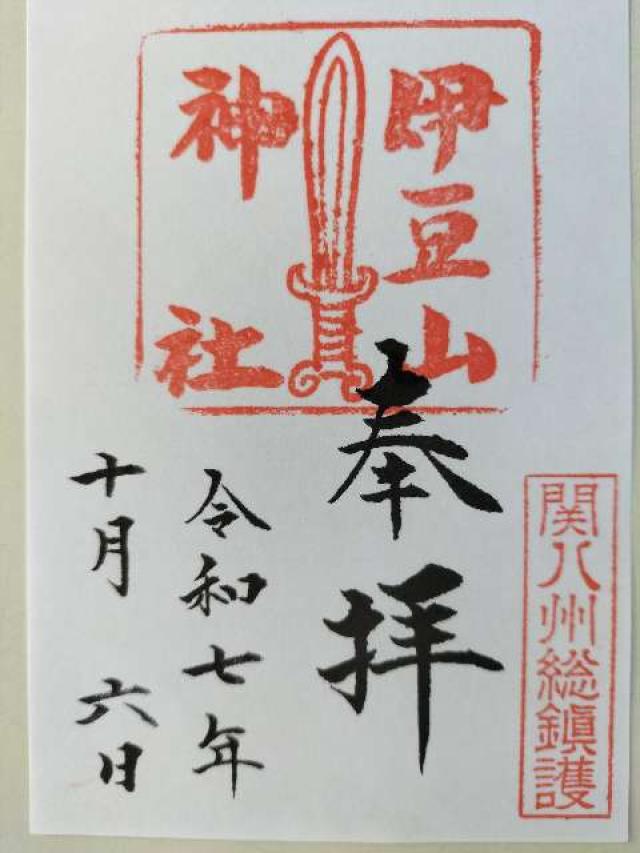 伊豆山
神社
関八州総鎮護
奉拝
令和七年
十月六日